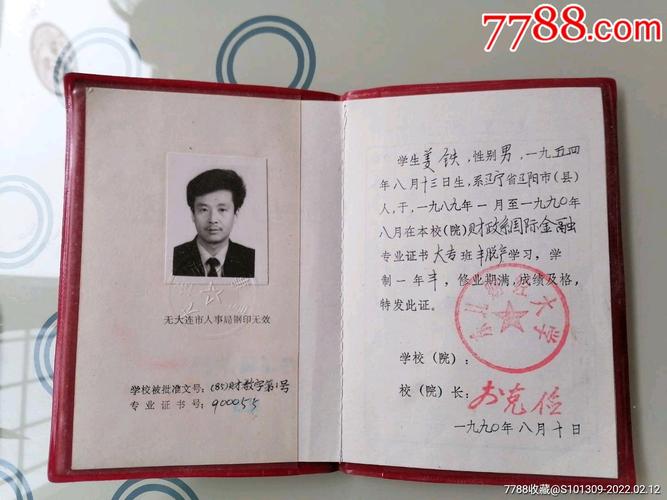 7788.com
无大连市人事局钢印无效
学校被批准文号：(85)财教字第1号
专业证书号：900055
学生姜铁，性别男，一九五四
年八月十三日生，系辽宁省辽阳市（县）
人，于，一九八九年一月至一九九〇年
八月在本校（院）财政系国际金融
专业证书大专班半脱产学习，学
制一年半，修业期满，成绩及格，
特发此证。
学校（院）：
大学
校（院）长：
克俭
一九九〇年八月十日
7788收藏@S101309-2022.02.12